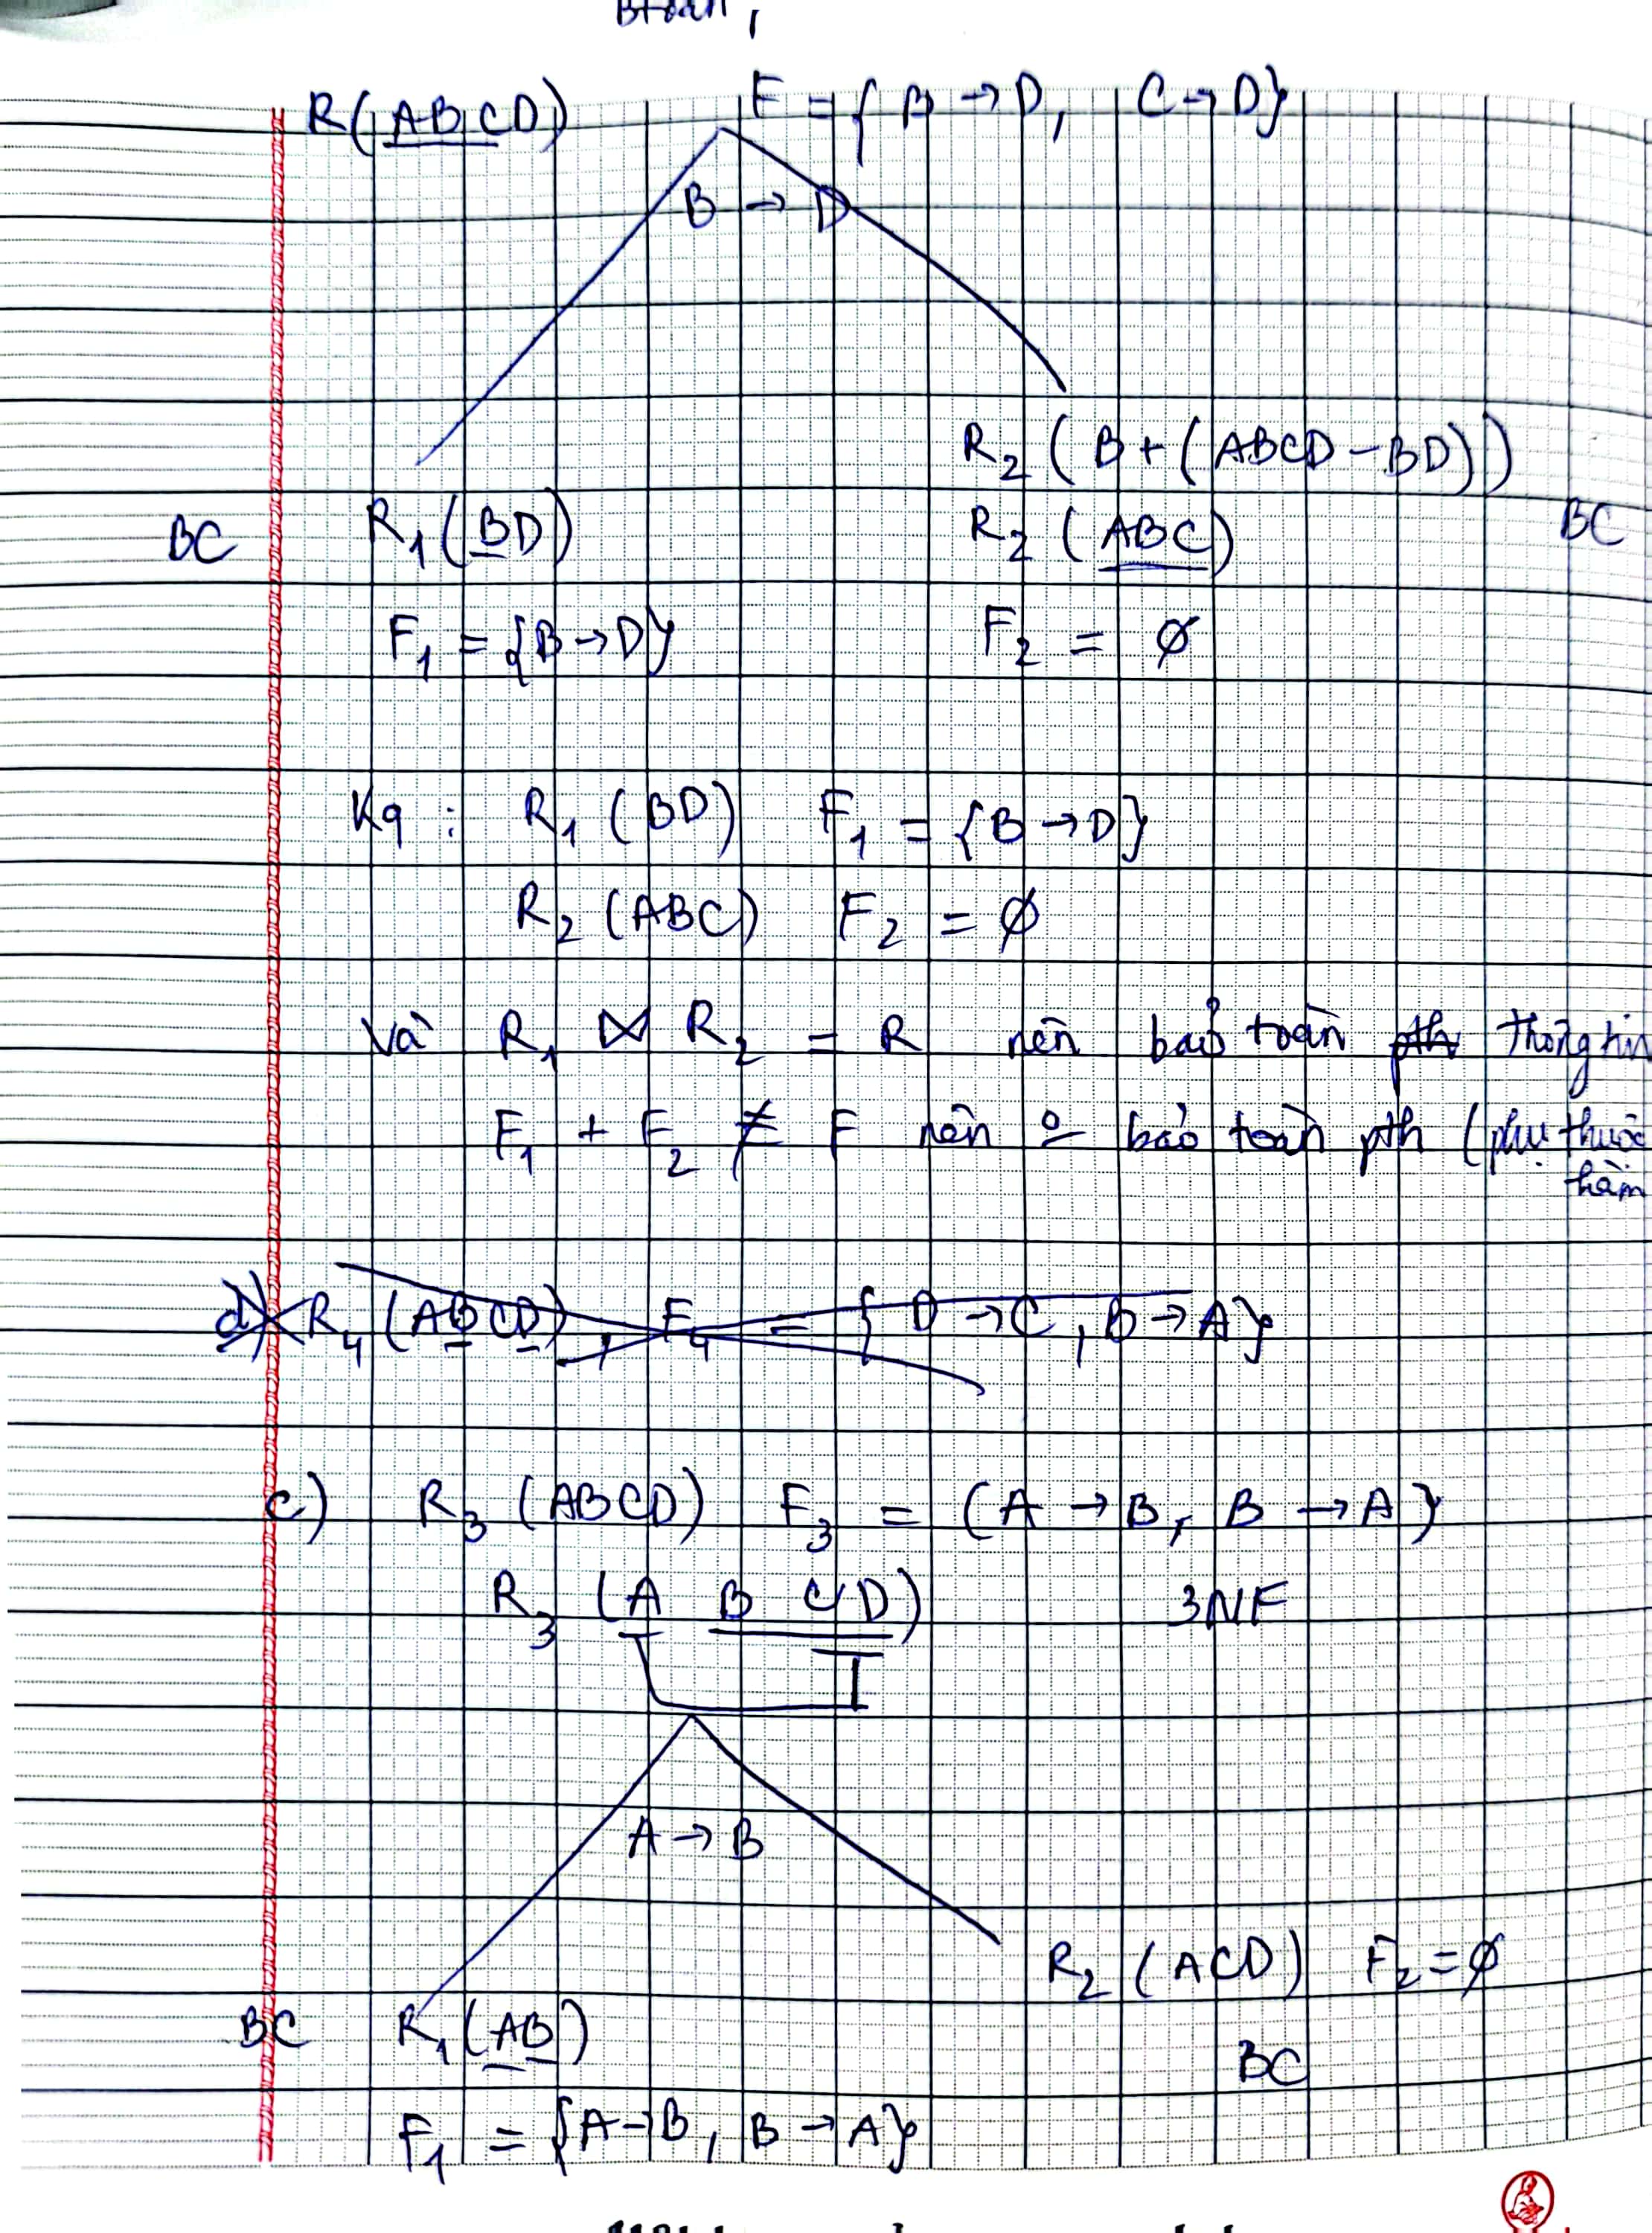 R(ABCD) F = { B → D, C → D}
B → D
R2 ( B + ( ABCD - BD))
BC R1 (BD) R2 (ABC) BC
F1 = {B → D} F2 = ∅
Kq : R1 (BD) F1 = {B → D}
R2 (ABC) F2 = ∅
Và R1 ⋈ R2 = R nên bảo toàn pth thông tin
F1 + F2 ≠ F nên bảo toàn pth (phụ thuộc
hàm
d) R4 (ABCD) , F4 = { D → C , B → A}
c) R3 (ABCD) F3 = (A → B, B → A}
R3 (A B C D) 3NF
A → B
R2 (ACD) F2 = ∅
BC R1 (AB)
BC
F1 = {A → B, B → A}